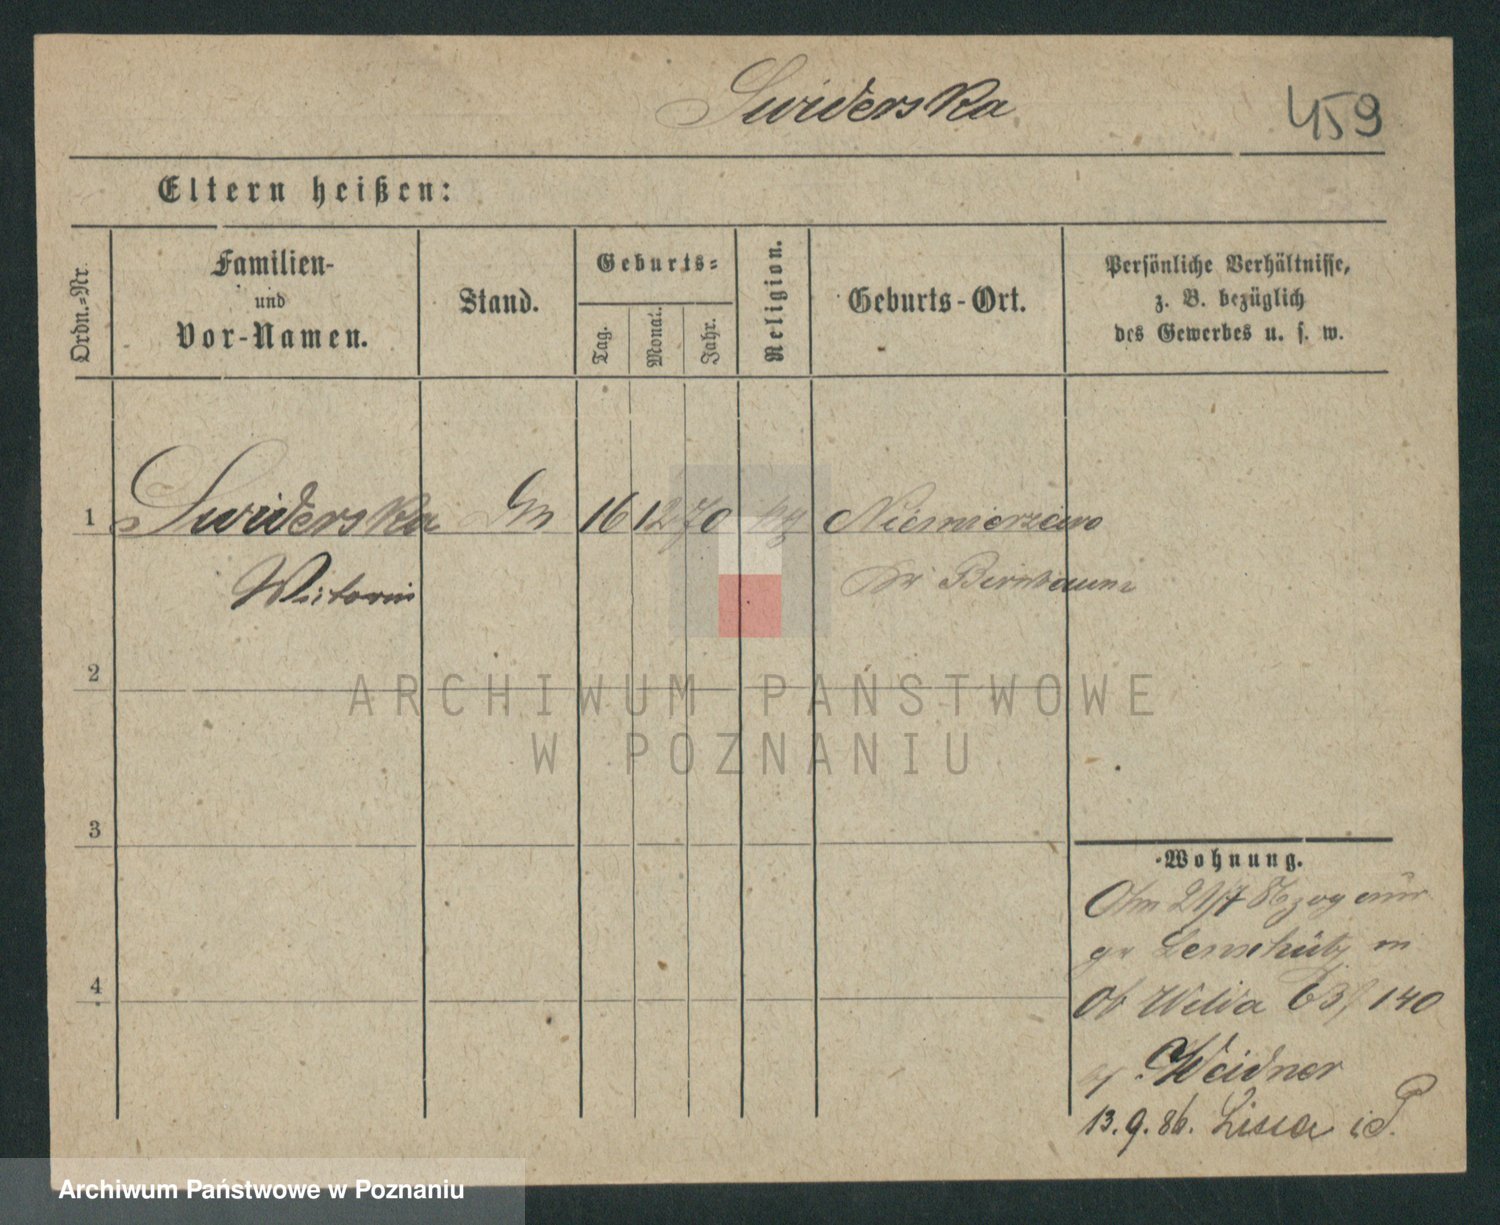 Swiderska
459
Eltern heißen:
Ordn.-Nr.
Familien-
und
Vor-Namen.
Stand.
Geburts-
Tag.
Monat.
Jahr.
Religion.
Geburts-Ort.
Persönliche Verhältnisse,
z. B. bezüglich
des Gewerbes u. s. w.
1 Swiderska 16 12 70 Niemierzewo
Birnbaum
2
ARCHIWUM PAŃSTWOWE
W POZNANIU
3
Wohnung.
21/7 86 zog
4
Ob Wilda 140
Weidner
13.9.86. Lissa i. P.
Archiwum Państwowe w Poznaniu